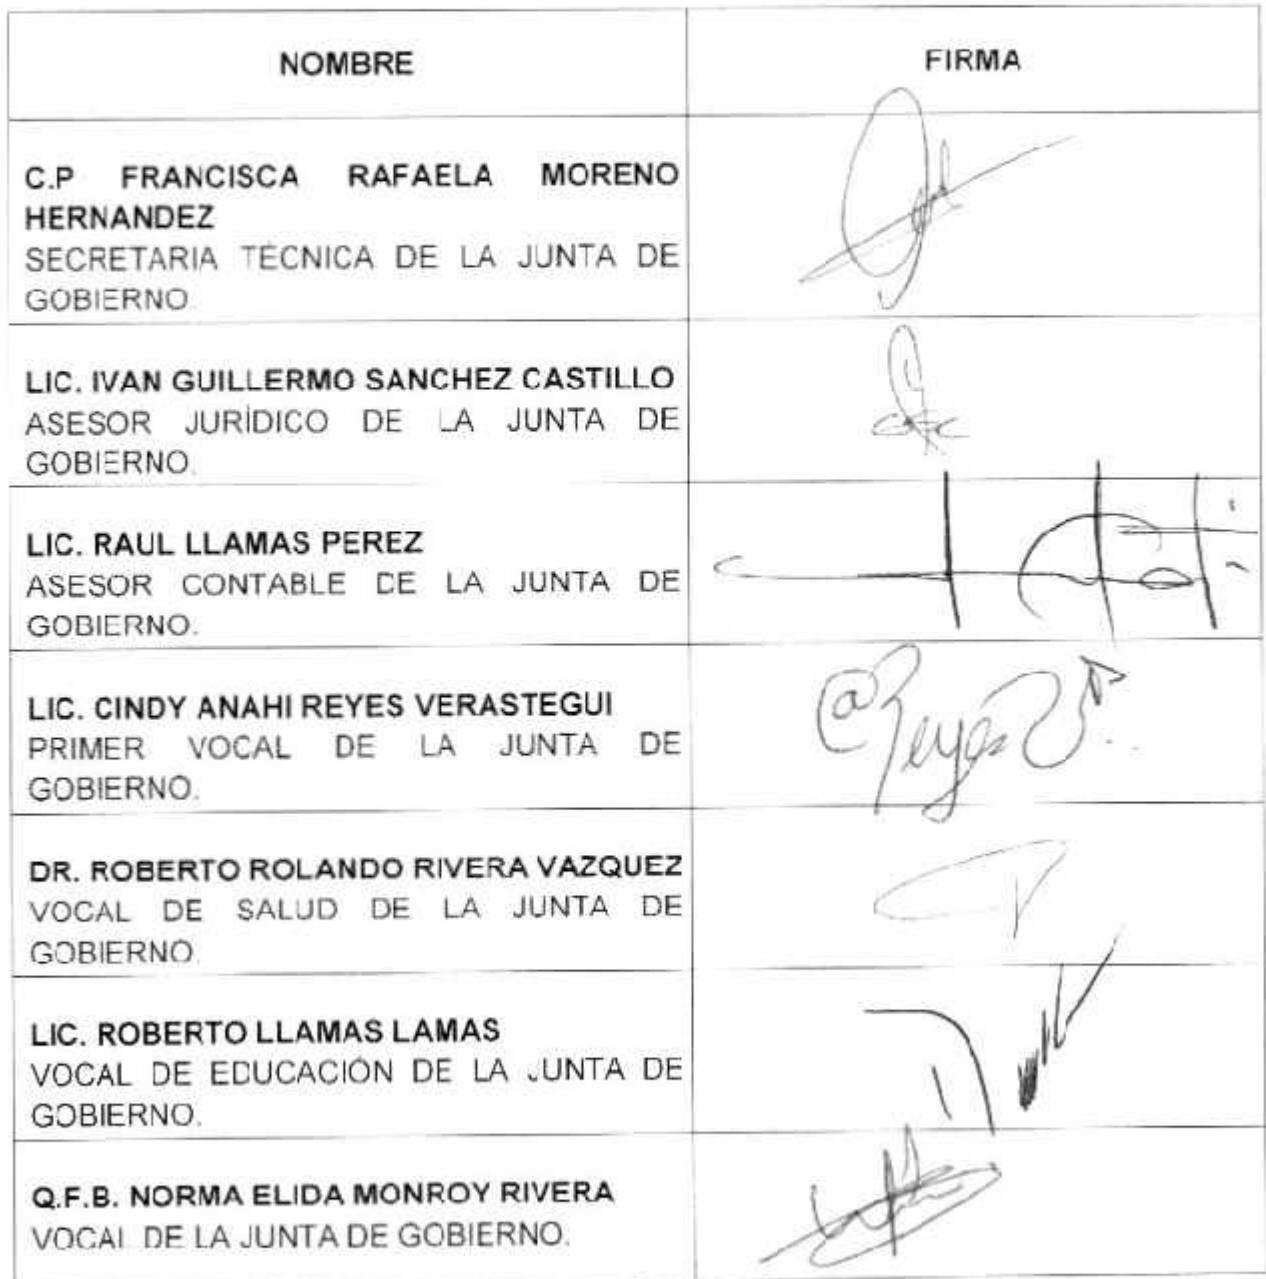 NOMBRE FIRMA
C.P FRANCISCA RAFAELA MORENO
HERNANDEZ
SECRETARIA TÉCNICA DE LA JUNTA DE
GOBIERNO.
LIC. IVAN GUILLERMO SANCHEZ CASTILLO
ASESOR JURÍDICO DE LA JUNTA DE
GOBIERNO.
LIC. RAUL LLAMAS PEREZ
ASESOR CONTABLE DE LA JUNTA DE
GOBIERNO.
LIC. CINDY ANAHI REYES VERASTEGUI
PRIMER VOCAL DE LA JUNTA DE
GOBIERNO.
@Reyes
DR. ROBERTO ROLANDO RIVERA VAZQUEZ
VOCAL DE SALUD DE LA JUNTA DE
GOBIERNO.
LIC. ROBERTO LLAMAS LAMAS
VOCAL DE EDUCACIÓN DE LA JUNTA DE
GOBIERNO.
Q.F.B. NORMA ELIDA MONROY RIVERA
VOCAL DE LA JUNTA DE GOBIERNO.